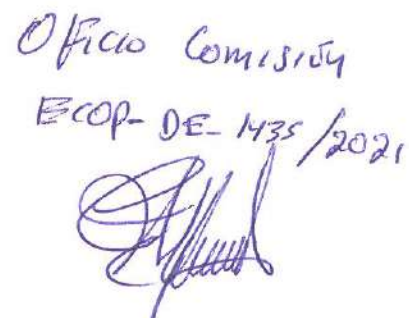 Oficio Comisión
ECOP-DE-1435/2021